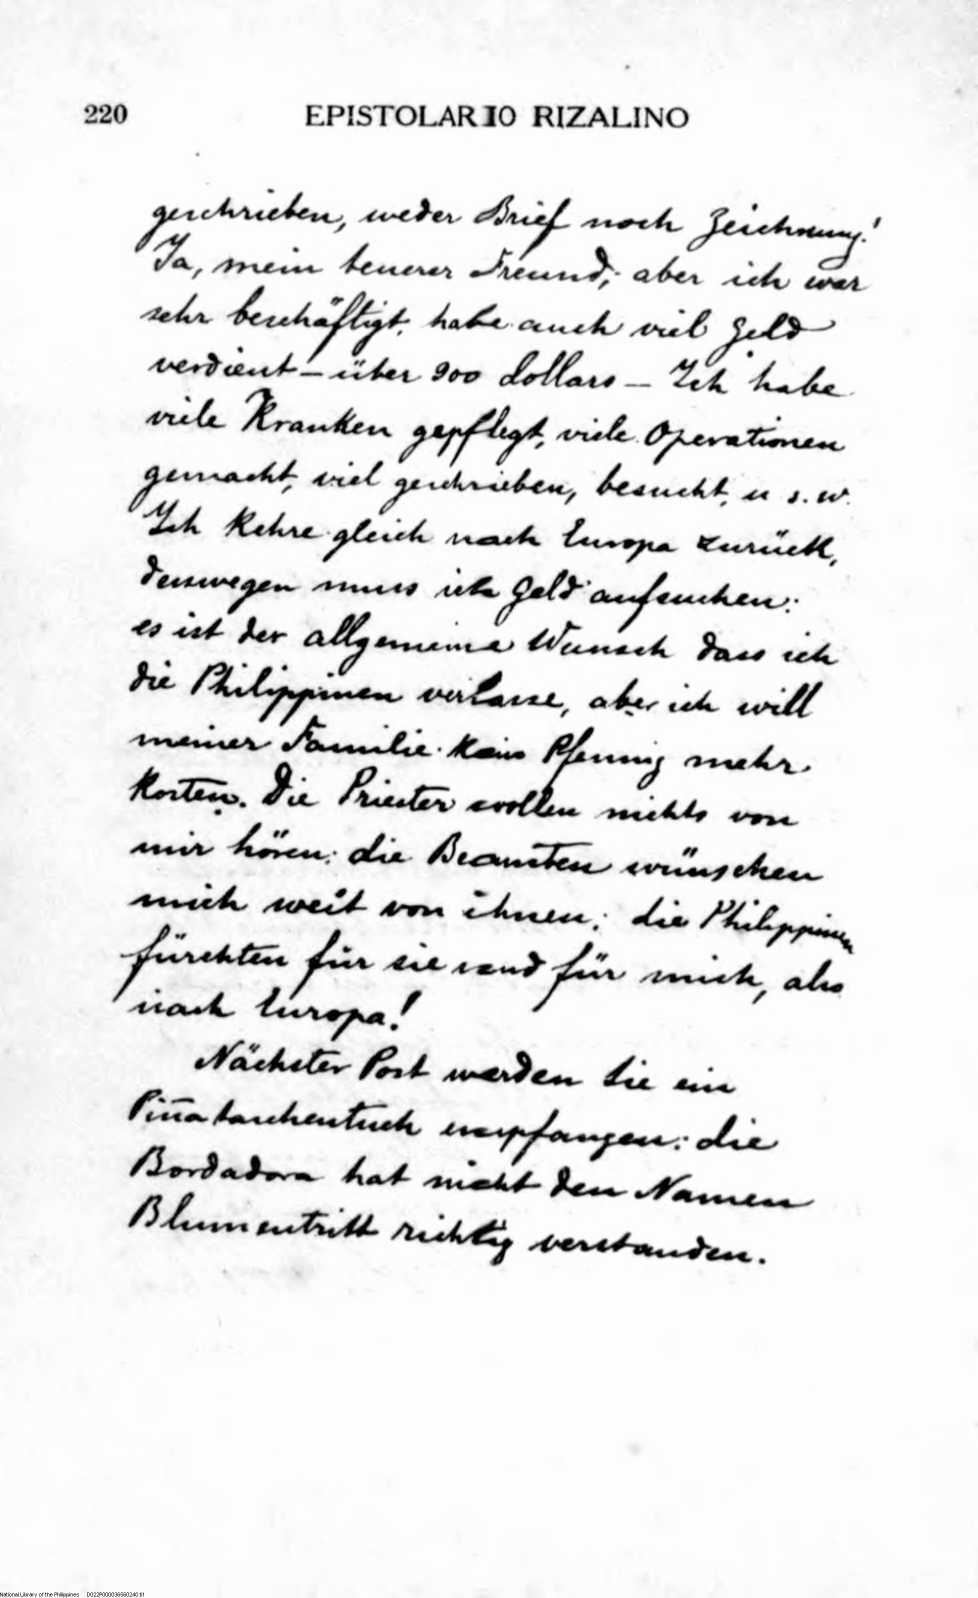 220
EPISTOLARIO RIZALINO
geschrieben, weder Brief noch Zeichnung!
Ja, mein teuerer Freund; aber ich war
sehr beschäftigt, habe auch viel Geld
verdient — über 900 dollars — Ich habe
viele Kranken gepflegt, viele Operationen
gemacht, viel geschrieben, besucht, u s. w.
Ich kehre gleich nach Europa zurück,
desswegen muss ich Geld aufsuchen:
es ist der allgemeine Wunsch dass ich
die Philippinen verlasse, aber ich will
meiner Familie kein Pfennig mehr
kosten. Die Priester wollen nichts von
mir hören; die Beamten wünschen
mich weit von ihnen; die Philippinen
fürchten für sie und für mich, also
nach Europa!
Nächster Post werden Sie ein
Piñataschentuch empfangen: die
Bordadora hat nicht den Namen
Blumentritt richtig verstanden.
National Library of the Philippines